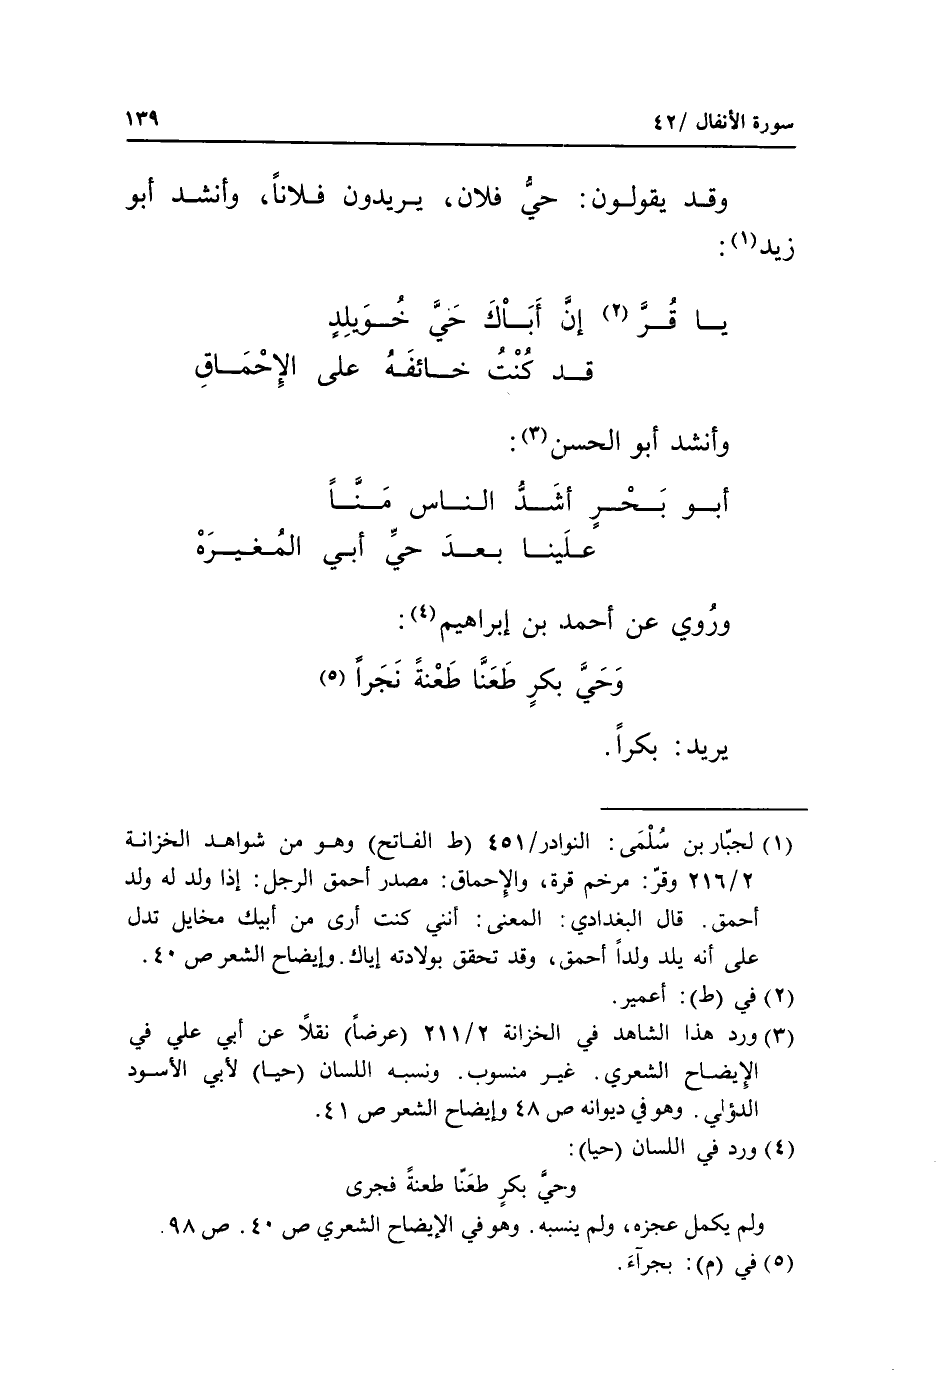 سورة الأنفال /٤٢ ١٣٩
وقـد يقولـون: حيُّ فلان، يـريدون فـلاناً، وأنشـد أبو
زيد(١):
يــا قُــرَّ(٢) إنَّ أَبَــاْكَ حَيَّ خُــوَيلِدٍ
قــد كُنْتُ خــائفَـهُ على الإحْمَــاقِ
وأنشد أبو الحسن(٣):
أبــو بَــحْــرٍ أشَــدُّ النـاس مَــنَّــاً
عـلَينـا بـعـدَ حيِّ أبـي المُـغـيـرَهْ
ورُوي عن أحمد بن إبراهيم(٤):
وَحَيَّ بكرٍ طَعَنَّا طَعْنةً نَجَراً (٥)
يريد: بكراً.
(١) لجبّار بن سُلْمَى: النوادر/٤٥١ (ط الفـاتح) وهـو من شواهـد الخزانـة
٢١٦/٢ وقرّ: مرخم قرة، والإحماق: مصدر أحمق الرجل: إذا ولد له ولد
أحمق. قال البغدادي: المعنى: أنني كنت أرى من أبيك مخايل تدل
على أنه يلد ولداً أحمق، وقد تحقق بولادته إياك. وإيضاح الشعر ص ٤٠.
(٢) في (ط): أعمير.
(٣) ورد هذا الشاهد في الخزانة ٢١١/٢ (عرضاً) نقلًا عن أبي علي في
الإيضـاح الشعري. غيـر منسوب. ونسبـه اللسان (حيـا) لأبي الأسـود
الدؤلي. وهو في ديوانه ص ٤٨ وإيضاح الشعر ص ٤١.
(٤) ورد في اللسان (حيا):
وحيَّ بكرٍ طعَنّا طعنةً فجرى
ولم يكمل عجزه، ولم ينسبه. وهو في الإيضاح الشعري ص ٤٠. ص ٩٨.
(٥) في (م): بجرآءَ.